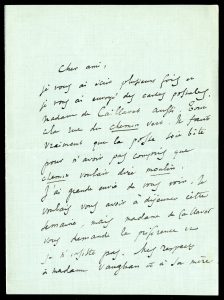 Cher ami,
je vous ai écrit plusieurs fois et
je vous ai envoyé des cartes postales,
madame de Caillavet aussi. Tout
cela rue du chemin vert. Il faut
vraiment que la poste soit bête
pour n'avoir pas compris que
chemin voulait dire moulin.
J'ai grande envie de vous voir. Je
voulais vous avoir à déjeuner cette
semaine, mais madame de Caillavet
vous demande la préférence
je n'insiste pas. Mes respects
à madame Vaughan et à sa mère